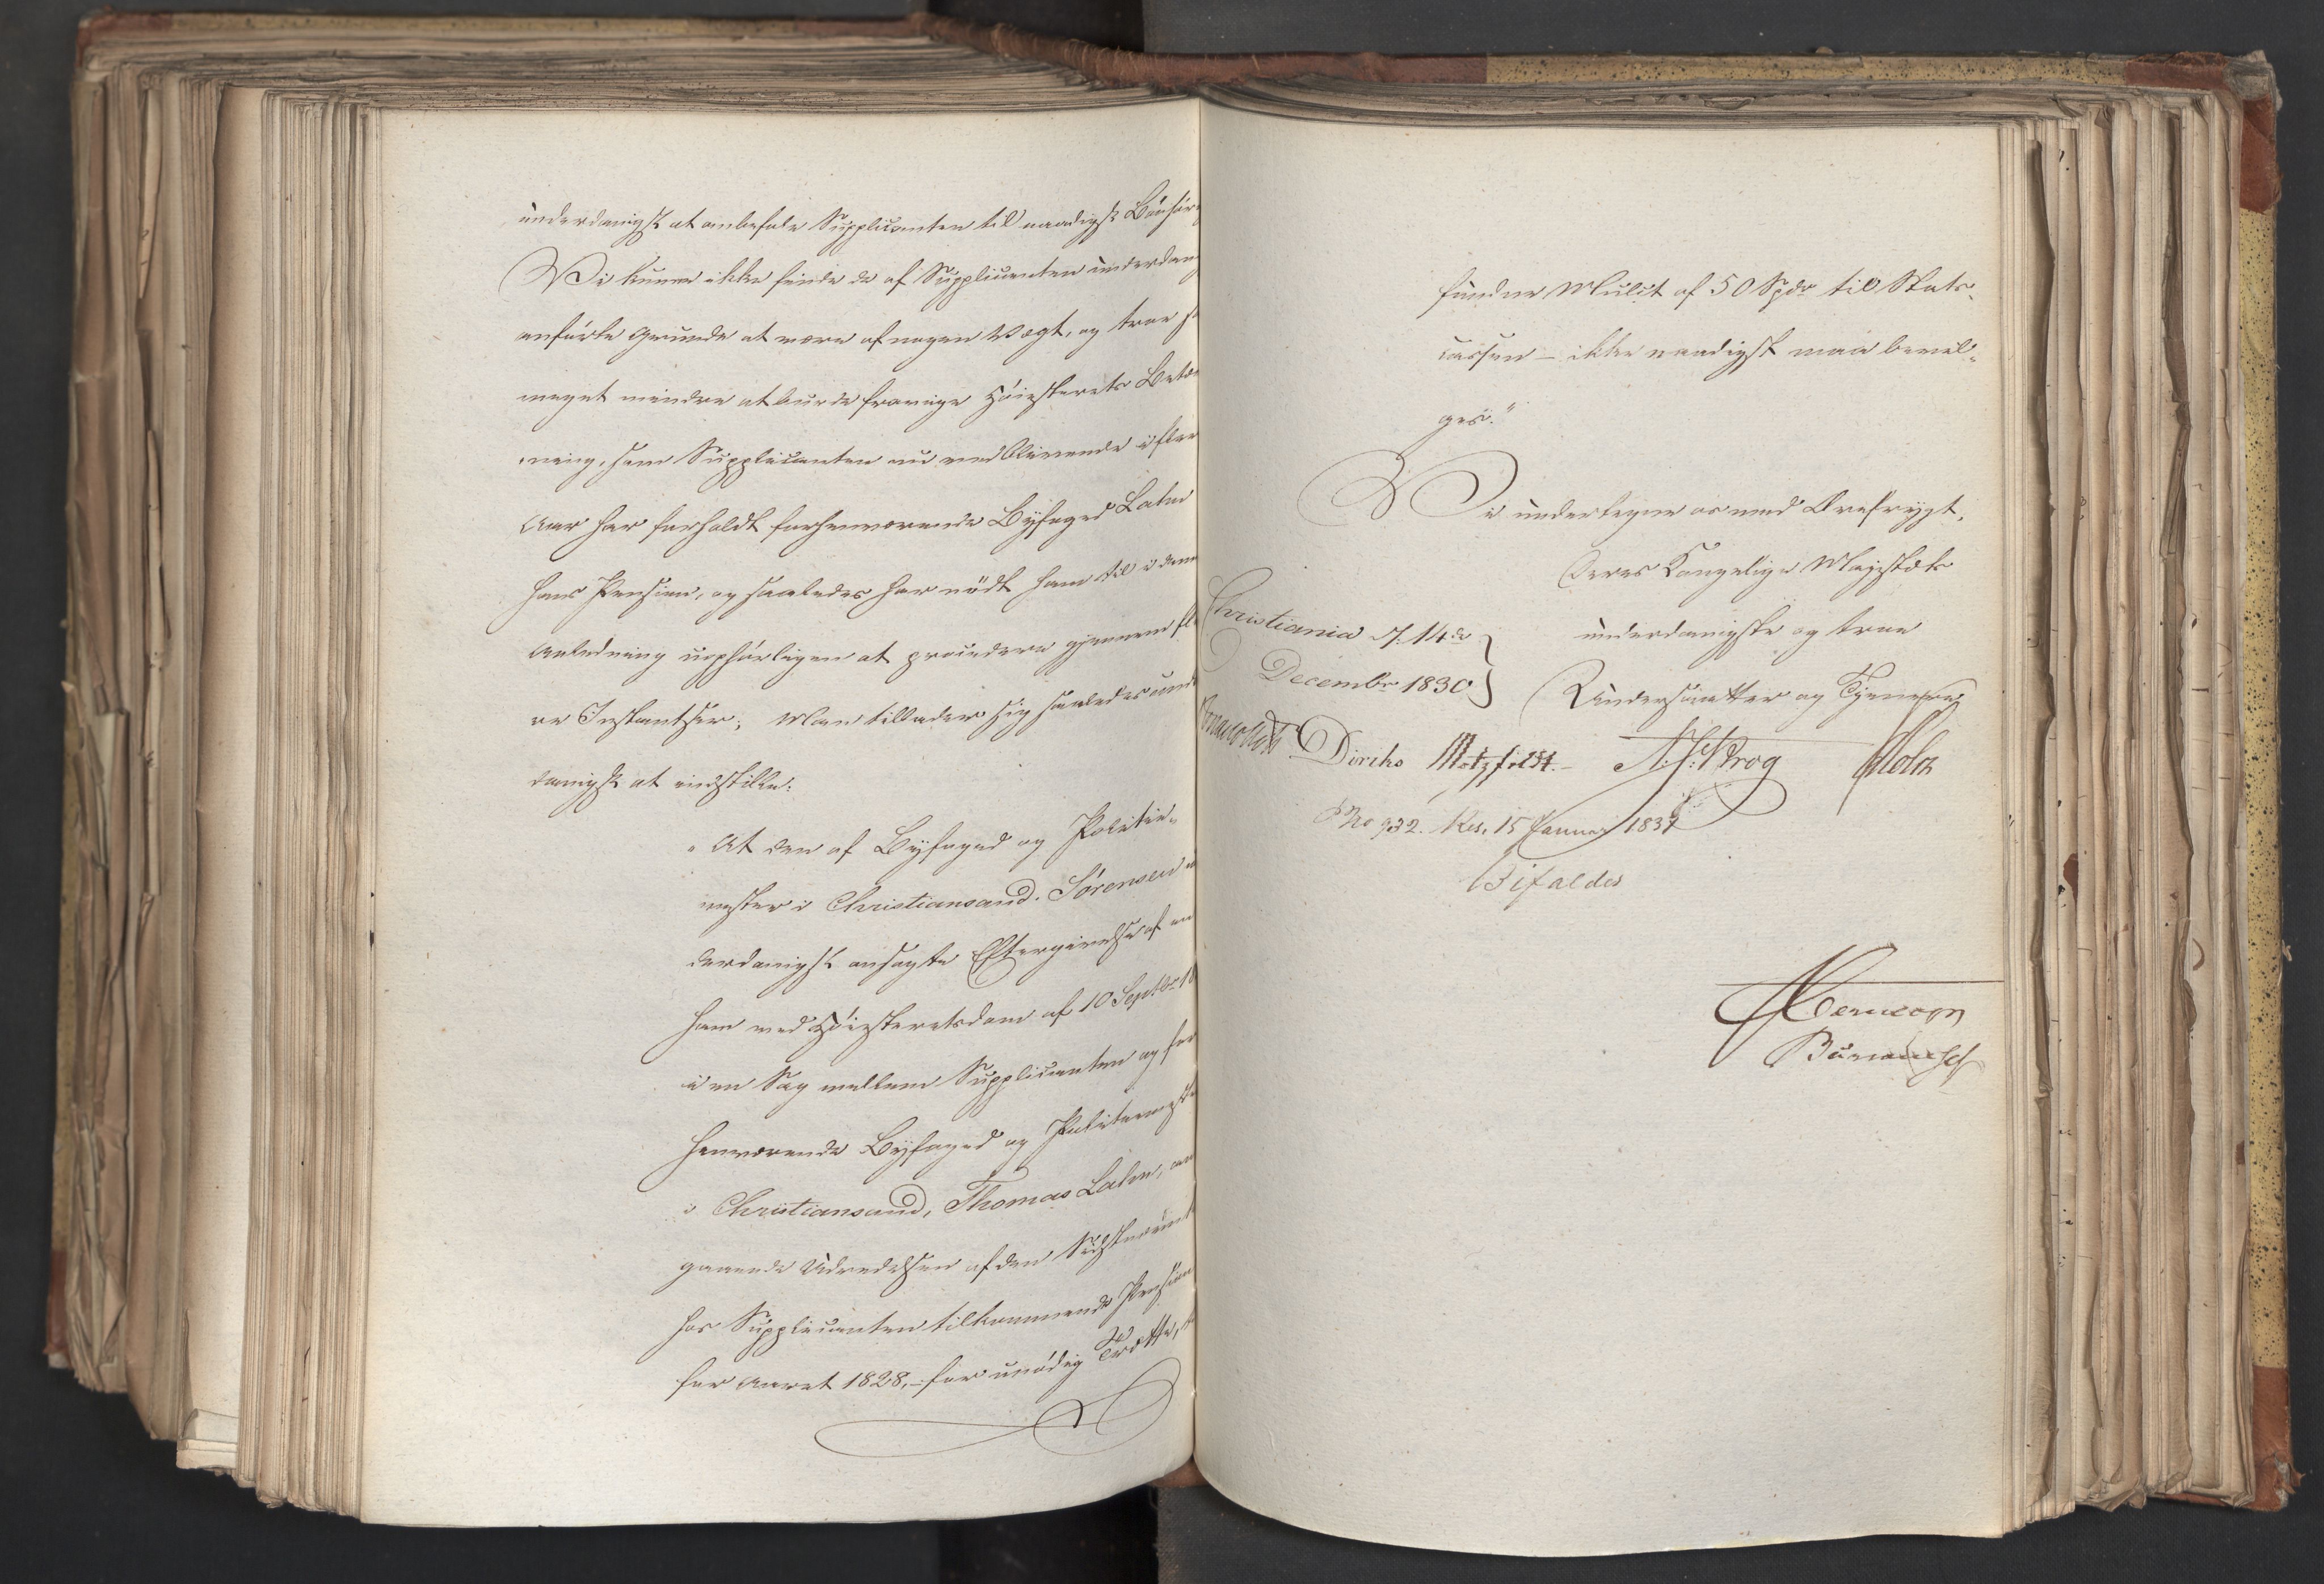 underdanigst at anbefale Supplicanten til naadigst Bönhör
Vi kunne ikke finde de af Supplicanten underdan
anförte Grunde at være af nogen Vægt, og troe
meget mindre at burde fravige Höiesterets Betæ
ning, som Supplicanten nu vedblivende i flere
Aar har forholdt forhenværende Byfoged Lalm
hans Pension, og saaledes har nödt ham til i den
Anledning uophörligen at procedere gjennem fle
re Instantser; Man tillader sig saaledes un
danigst at indstille:
"At den af Byfoged og Politie-
mester i Christiansand Sörensen
derdanigst ansøgte Eftergivelse af en
ham ved Höiesteretsdom af 10 Septbr 18
i en Sag mellem Supplicanten og for
henværende Byfoged og Politiemester
i Christiansand, Thomas Lalm, an
gaaende Udredelsen af den Sidstnævnte
hos Supplicanten tilkommende Pension
for Aaret 1828, for unödig Trætte,
fundne Mulct af 50 Spdr til Stats-
cassen – ikke naadigst maa bevil-
ges."
Vi undertegne os med Ærefrygt,
Deres Kongelige Majestæts
underdanigste og troe
Undersaatter og Tjenere
Christiania d. 14de
Decembr 1830
Diriks Motzfeldt. N. J. Krog Holst
No 932. Res. 15 Januar 1831
Bifaldes